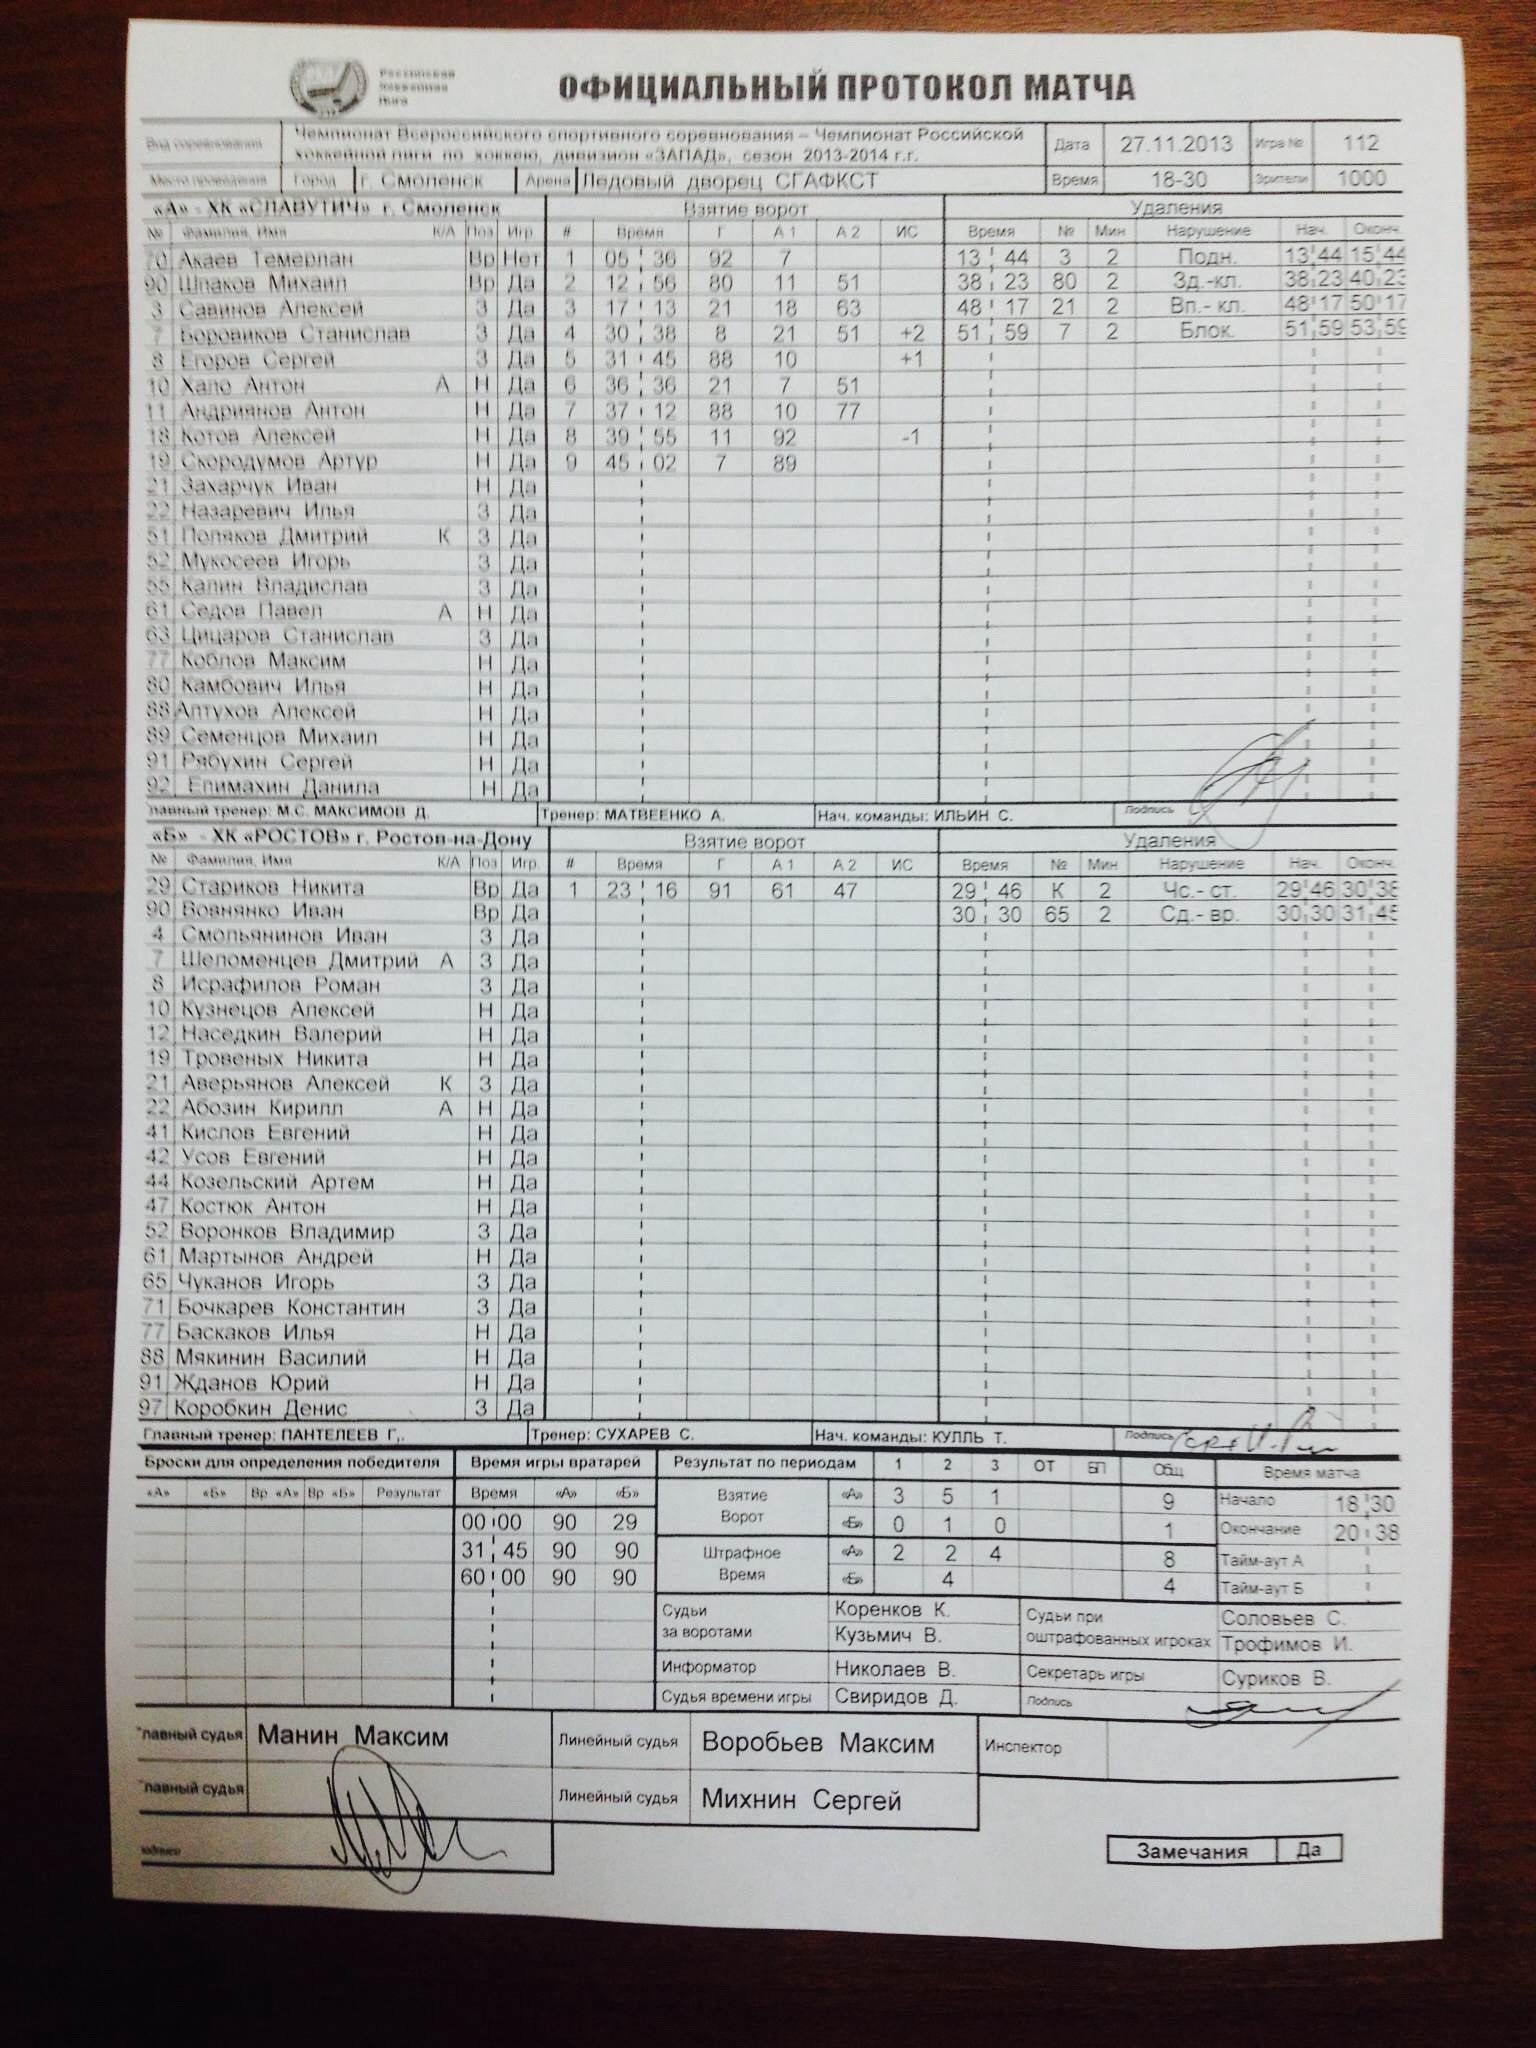 Российская
Хоккейная
Лига
ОФИЦИАЛЬНЫЙ ПРОТОКОЛ МАТЧА
Вид соревнования Чемпионат Всероссийского спортивного соревнования – Чемпионат Российской хоккейной лиги по хоккею, дивизион «ЗАПАД», сезон 2013-2014 г.г. Дата 27.11.2013 Игра № 112
Место проведения Город г. Смоленск Арена Ледовый дворец СГАФКСТ Время 18-30 Зрители 1000
«А» - ХК «СЛАВУТИЧ» г. Смоленск Взятие ворот Удаления
№ Фамилия, Имя К/А Поз Игр. # Время Г А 1 А 2 ИС Время № Мин Нарушение Нач. Оконч.
70 Акаев Темерлан Вр Нет 1 05 36 92 7 13 44 3 2 Подн. 13 44 15 44
90 Шпаков Михаил Вр Да 2 12 56 80 11 51 38 23 80 2 Зд.-кл. 38 23 40 23
3 Савинов Алексей З Да 3 17 13 21 18 63 48 17 21 2 Вп.- кл. 48 17 50 17
7 Боровиков Станислав З Да 4 30 38 8 21 51 +2 51 59 7 2 Блок. 51 59 53 59
8 Егоров Сергей З Да 5 31 45 88 10 +1
10 Хало Антон А Н Да 6 36 36 21 7 51
11 Андриянов Антон Н Да 7 37 12 88 10 77
18 Котов Алексей Н Да 8 39 55 11 92 -1
19 Скородумов Артур Н Да 9 45 02 7 89
21 Захарчук Иван Н Да
22 Назаревич Илья З Да
51 Поляков Дмитрий К З Да
52 Мукосеев Игорь З Да
55 Калин Владислав З Да
61 Седов Павел А Н Да
63 Цицаров Станислав З Да
77 Коблов Максим Н Да
80 Камбович Илья Н Да
88 Алтухов Алексей Н Да
89 Семенцов Михаил Н Да
91 Рябухин Сергей Н Да
92 Епимахин Данила Н Да
лавный тренер: М.С. МАКСИМОВ Д. Тренер: МАТВЕЕНКО А. Нач. команды: ИЛЬИН С. Подпись
«Б» - ХК «РОСТОВ» г. Ростов-на-Дону Взятие ворот Удаления
№ Фамилия, Имя К/А Поз Игр. # Время Г А 1 А 2 ИС Время № Мин Нарушение Нач. Оконч.
29 Стариков Никита Вр Да 1 23 16 91 61 47 29 46 К 2 Чс.- ст. 29 46 30 38
90 Вовнянко Иван Вр Да 30 30 65 2 Сд.- вр. 30 30 31 45
4 Смольянинов Иван З Да
7 Шеломенцев Дмитрий А З Да
8 Исрафилов Роман З Да
10 Кузнецов Алексей Н Да
12 Наседкин Валерий Н Да
19 Тровеных Никита Н Да
21 Аверьянов Алексей К З Да
22 Абозин Кирилл А Н Да
41 Кислов Евгений Н Да
42 Усов Евгений Н Да
44 Козельский Артем Н Да
47 Костюк Антон Н Да
52 Воронков Владимир З Да
61 Мартынов Андрей Н Да
65 Чуканов Игорь З Да
71 Бочкарев Константин З Да
77 Баскаков Илья Н Да
88 Мякинин Василий Н Да
91 Жданов Юрий Н Да
97 Коробкин Денис З Да
Главный тренер: ПАНТЕЛЕЕВ Г,. Тренер: СУХАРЕВ С. Нач. команды: КУЛЛЬ Т. Подпись
Броски для определения победителя Время игры вратарей Результат по периодам 1 2 3 ОТ БП Общ Время матча
«А» «Б» Вр «А» Вр «Б» Результат Время «А» «Б» Взятие Ворот «А» 3 5 1 9 Начало 18 30
00 00 90 29 «Б» 0 1 0 1 Окончание 20 38
31 45 90 90 Штрафное Время «А» 2 2 4 8 Тайм-аут А
60 00 90 90 «Б» 4 4 Тайм-аут Б
Судьи за воротами Коренков К. Судьи при оштрафованных игроках Соловьев С.
Кузьмич В. Трофимов И.
Информатор Николаев В. Секретарь игры Суриков В.
Судья времени игры Свиридов Д. Подпись
лавный судья Манин Максим Линейный судья Воробьев Максим Инспектор
лавный судья Линейный судья Михнин Сергей
Замечания Да